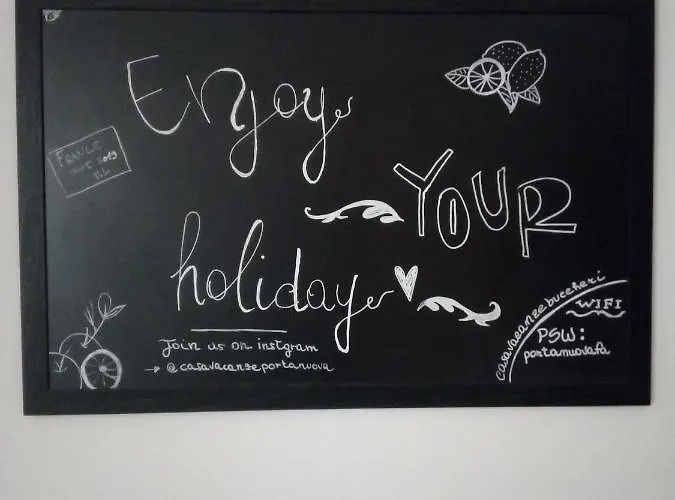 Enjoy
FRANCE
2019
YOUR
holiday
Join us on instgram
→ @casavacanzeportanuova
casavacanzebuccheri
WIFI
PSW:
portanuovapa